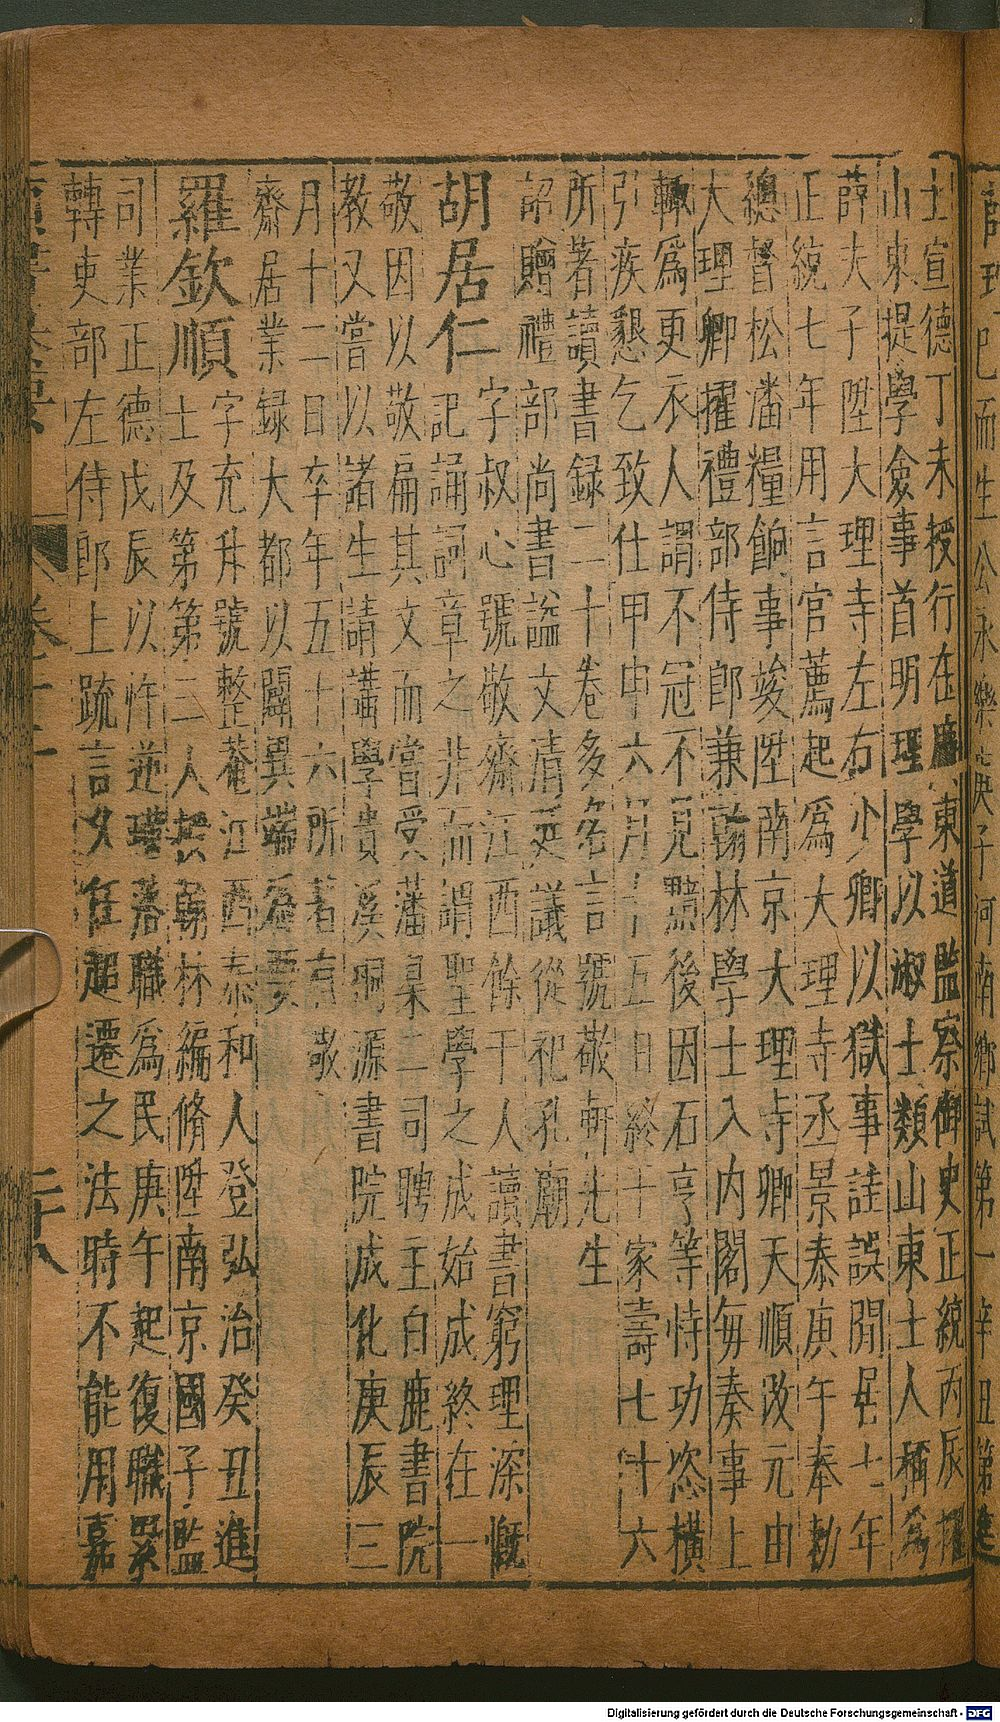 巳而生公永樂庚子河南鄉試第一辛丑第進
士宣德丁未授行在廣東道監察御史正統丙辰擢
山東提學僉事首明理學以淑士類山東士人稱爲
薛夫子陞大理寺左右少卿以獄事詿誤閒居七年
正統七年用言官薦起爲大理寺丞景泰庚午奉勅
總督松潘糧餉事竣陞南京大理寺卿天順改元由
大理卿擢禮部侍郎兼翰林學士入内閣每奏事上
輙爲更衣人謂不冠不見黯後因石亨等恃功恣橫
引疾懇乞致仕甲申六月十五日終于家壽七十六
所著讀書録二十卷多名言號敬軒先生
詔贈禮部尚書謚文清廷議從祀孔廟
胡居仁字叔心號敬齋江西餘干人讀書窮理深慨
記誦詞章之非而謂聖學之成始成終在一
敬因以敬扁其文而當受藩臬二司聘主白鹿書院
教又當以諸生請講學貴溪桐源書院成化庚辰三
月十二日卒年五十六所著有敬
齋居業録大都以闢異端爲要
羅欽順字充升號整菴江西泰和人登弘治癸丑進
士及第第三人授翰林編脩陞南京國子監
司業正德戊辰以忤逆瑾落職爲民庚午起復職累
轉吏部左侍郎上疏言久任超遷之法時不能用嘉
卷十二
二十八
Digitalisierung gefördert durch die Deutsche Forschungsgemeinschaft - DFG